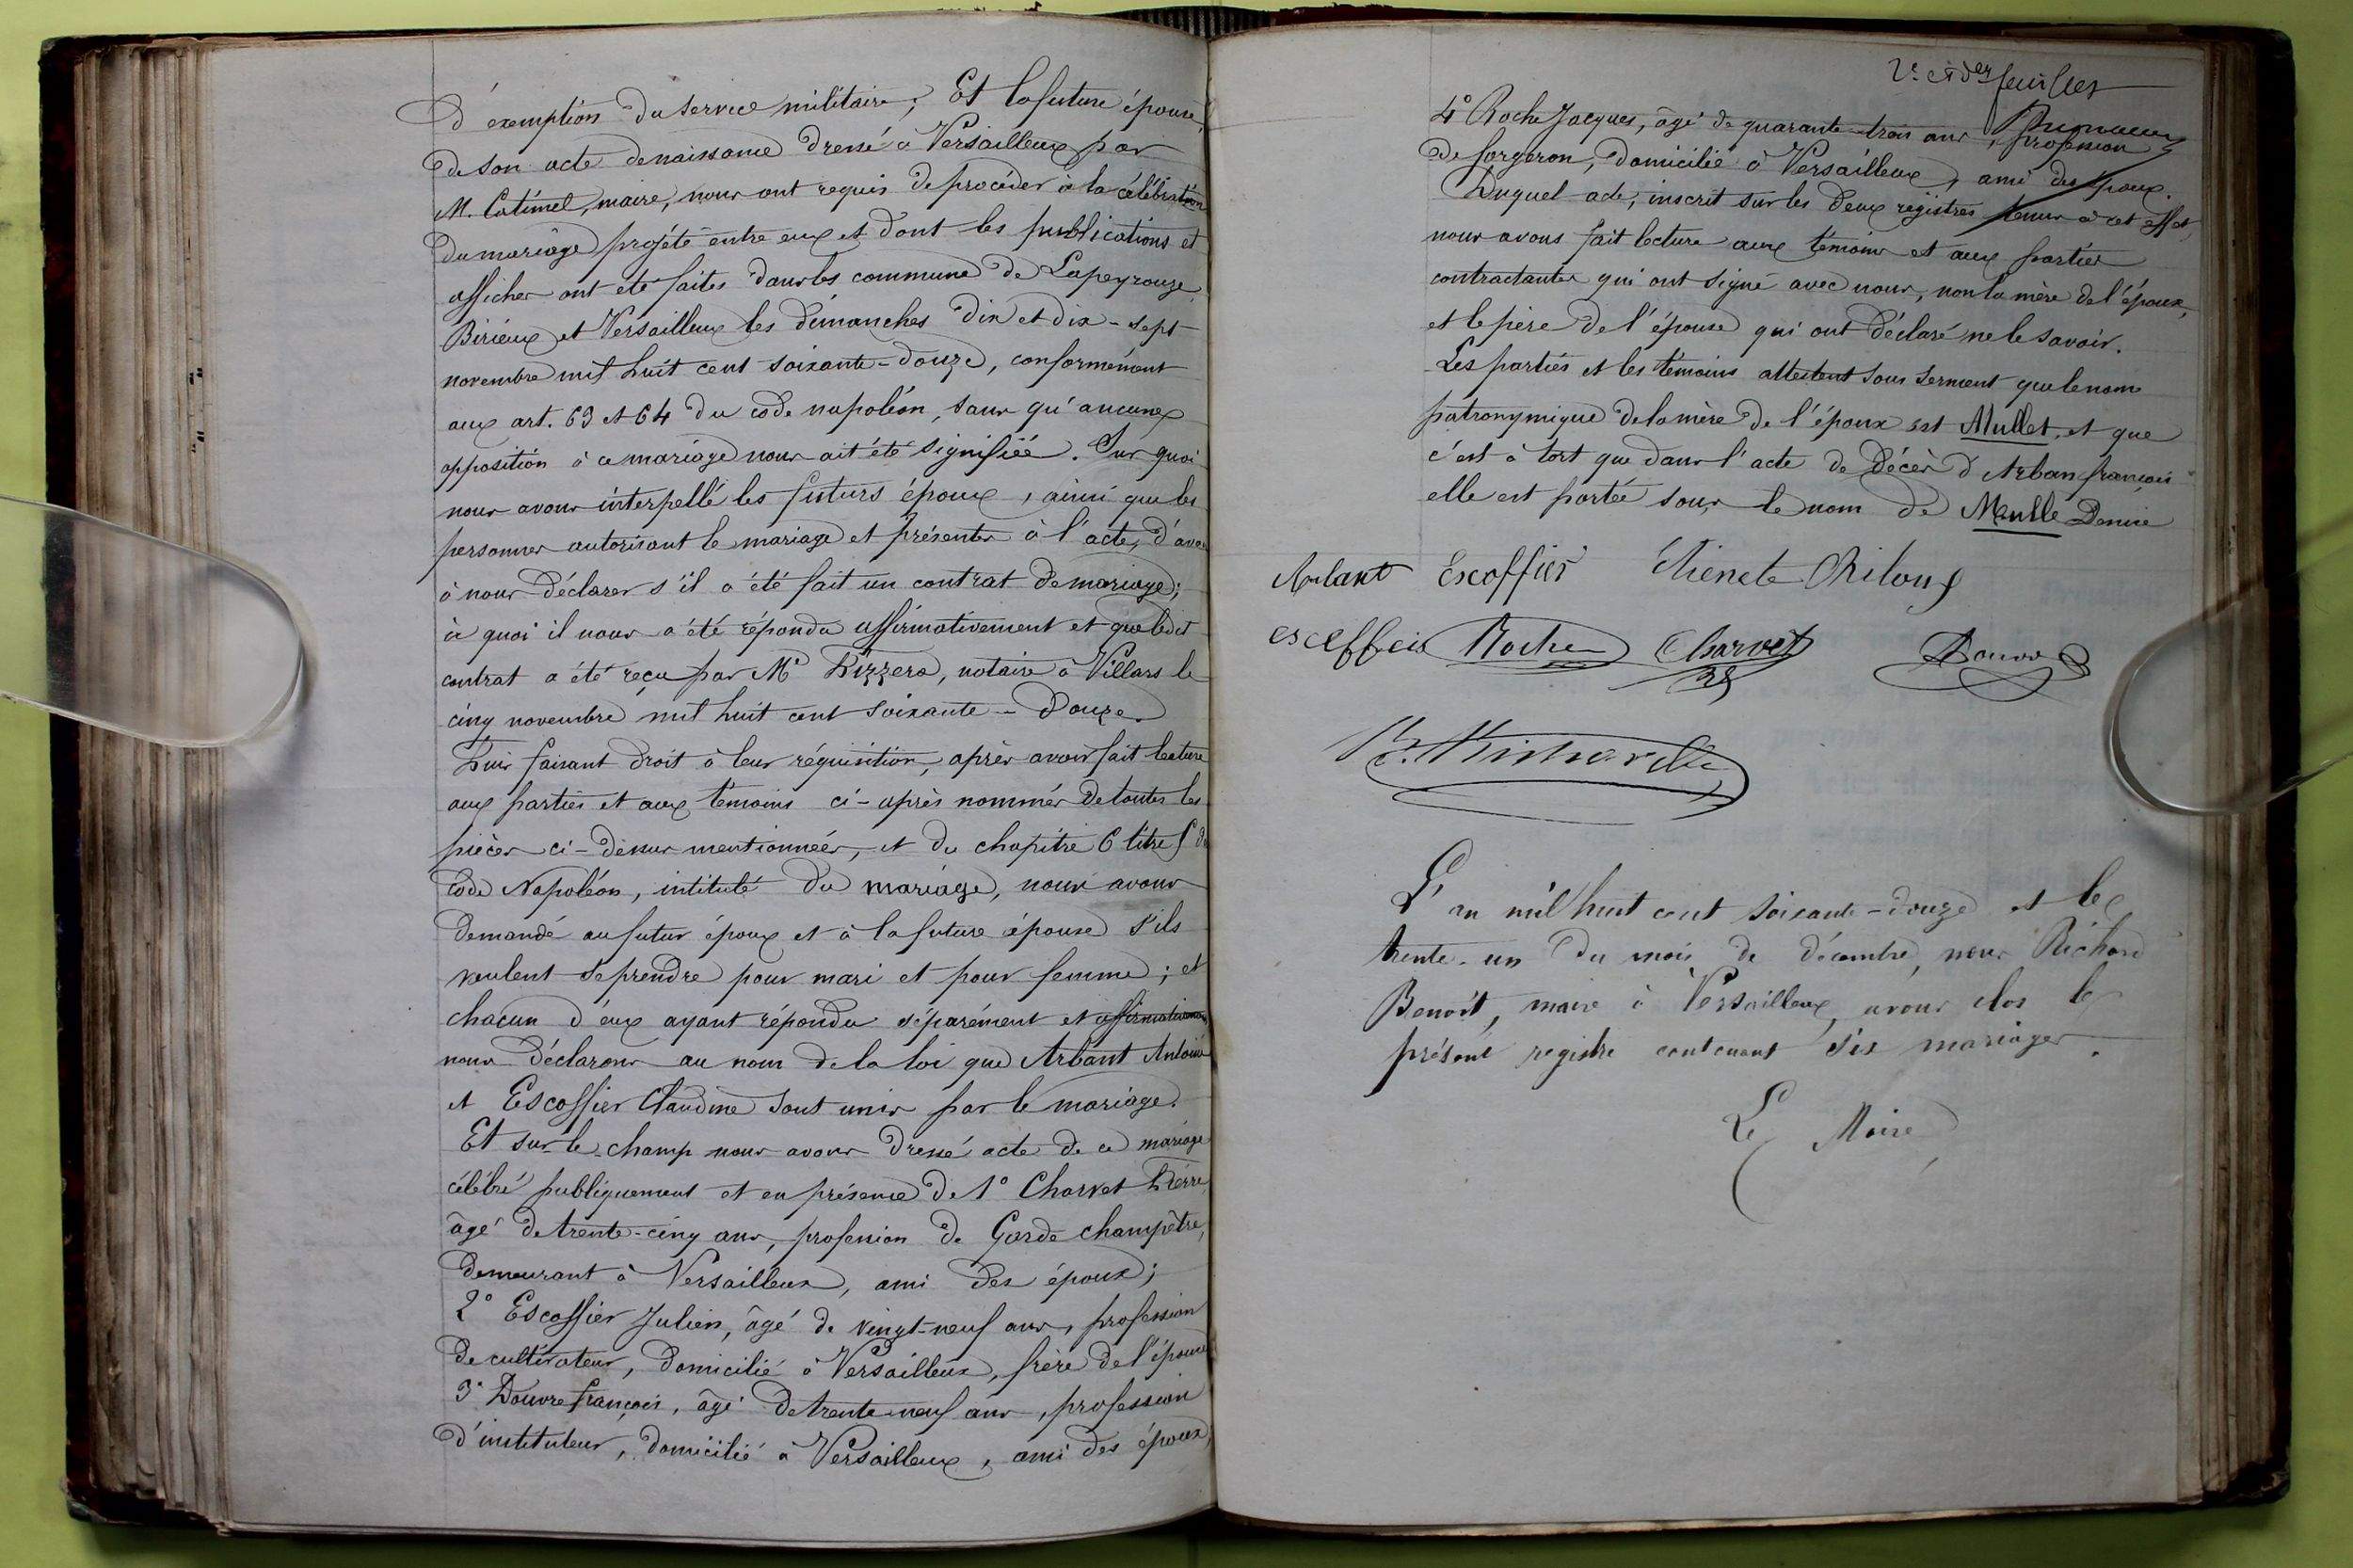 d'exemption du service militaire; Et la future épouse,
de son acte de naissance dressé à Versailleux par
M. Catimel, maire, nous ont requis de procéder à la célébration
du mariage projeté entre eux et dont les publications et
affiches ont été faites dans les commune de Lapeyrouze,
Birieux et Versailleux les dimanches dix et dix-sept
novembre mil huit cent soixante-douze, conformément
aux art. 63 et 64 du code napoléon, sans qu'aucune
opposition à ce mariage nous ait été signifiée. Sur quoi
nous avons interpellé les futurs époux, ainsi que les
personnes autorisant le mariage et présentes à l'acte, d'avoir
à nous déclarer s'il a été fait un contrat de mariage;
à quoi il nous a été répondu affirmativement et que ledit
contrat a été reçu par Me Pizzera, notaire à Villars le
cinq novembre mil huit cent soixante-douze.
Puis faisant droit à leur réquisition, après avoir fait lecture
aux parties et aux témoins ci-après nommés de toutes les
pièces ci-dessus mentionnées, et du chapitre 6 titre 5 du
Code Napoléon, intitulé du mariage, nous avons
demandé au futur époux et à la future épouse s'ils
veulent se prendre pour mari et pour femme; et
chacun d'eux ayant répondu séparément et affirmativement
nous déclarons au nom de la loi que Arbant Antoine
et Escoffier Claudine sont unis par le mariage.
Et sur-le-champ nous avons dressé acte de ce mariage
célébré publiquement et en présence de 1° Charvet Pierre,
âgé de trente-cinq ans, profession de Garde champêtre,
demeurant à Versailleux, ami des époux;
2° Escoffier Julien, âgé de vingt-neuf ans, profession
de cultivateur, domicilié à Versailleux, frère de l'épouse
3° Douvre françois, âgé de trente-neuf ans, profession
d'instituteur, domicilié à Versailleux, ami des époux,
2e et der feuillet
4° Roche Jacques, âgé de quarante-trois ans, profession
de forgeron, domicilié à Versailleux, ami des époux.
Duquel acte, inscrit sur les deux registres tenus à cet effet,
nous avons fait lecture aux témoins et aux parties
contractantes qui ont signé avec nous, non la mère de l'époux,
et le père de l'épouse qui ont déclaré ne le savoir.
Les parties et les témoins attestent sous serment que le nom
patronymique de la mère de l'époux est Mullet, et que
c'est à tort que dans l'acte de décès d'Arban françois
elle est portée sous le nom de Meulle Denise
Arbant Escoffier
escoffier Roche Charvet Douvre
L'an mil huit cent soixante-douze et le
trente-un du mois de décembre, nous Richard
Benoît, maire à Versailleux, avons clos le
présent registre contenant six mariages.
Le Maire